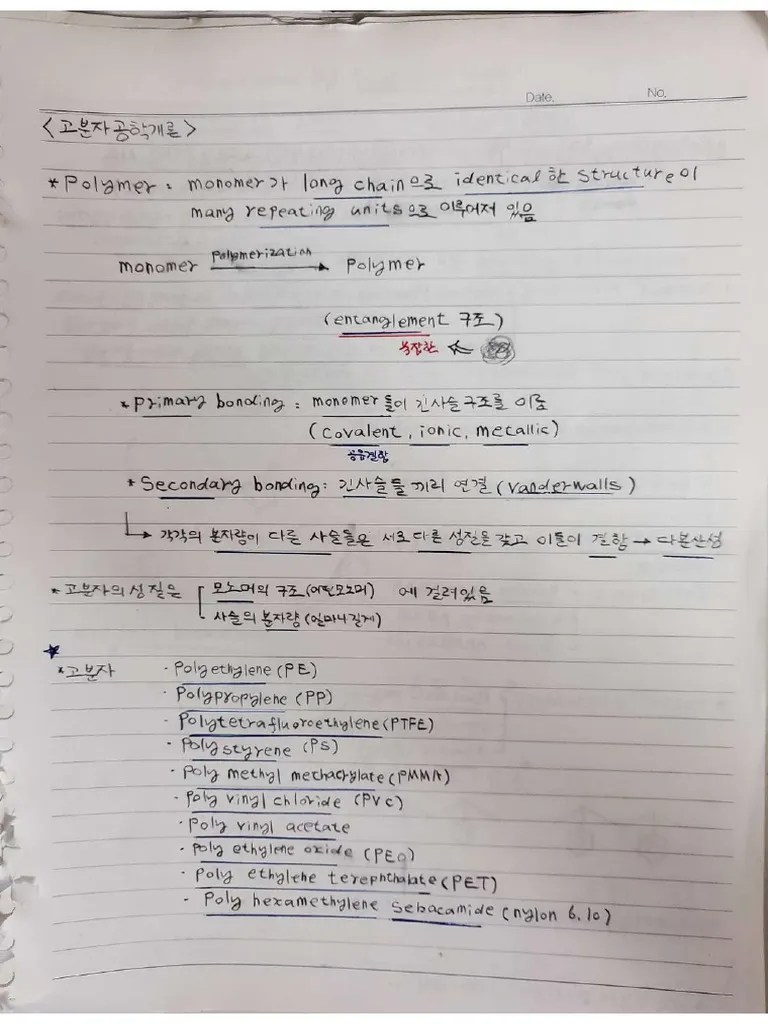 Date.
No.
<고분자공학개론>
*Polymer : monomer가 long chain으로 identical한 structure이
many repeating units으로 이루어져 있음
Polymerization
monomer → Polymer
(entanglement 구조)
복잡한 ←
*Primary bonding : monomer들이 긴사슬구조를 이룸
(covalent, ionic, metallic)
공유결합
*Secondary bonding: 긴사슬들끼리 연결(vanderwalls)
↳ 각각의 분자량이 다른 사슬들은 서로 다른 성질을 갖고 이들이 결합 → 다분산성
*고분자의 성질은 모노머의 구조(어떤모노머) 에 걸려있음
사슬의 분자량(얼마나길게)
★
*고분자 · Polyethylene(PE)
· Polypropylene (PP)
· Polytetrafluoroethylene(PTFE)
· Polystyrene (PS)
· Poly methyl methacrylate(PMMA)
· Poly vinyl chloride (PVC)
· Poly vinyl acetate
· Poly ethylene oxide (PEO)
· Poly ethylene terephthalate(PET)
- Poly hexamethylene sebacamide (nylon 6.10)